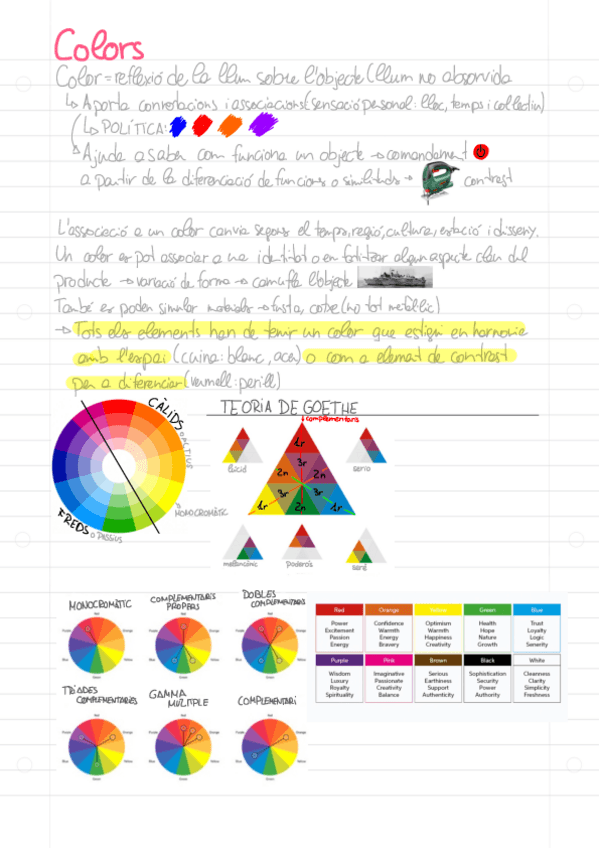 Colors
Color = reflexió de la llum sobre l'objecte (llum no absorvida
↳ Aporta connotacions i associacions (sensació personal: lloc, temps i col·lectiu)
↳ POLÍTICA:
Ajuda a saber com funciona un objecte → comandament
a partir de la diferenciació de funcions o similituds → contrast
L'associació a un color canvia segons el temps, regió, cultura, estació i disseny.
Un color es pot associar a una identitat o enfatitzar algun aspecte clau del
producte → variació de forma → camufla l'objecte
També es poden simular materials → fusta, cobre (no tot metàl·lic)
→ Tots els elements han de tenir un color que estigui en harmonia
amb l'espai (cuina: blanc, acer) o com a element de contrast
per a diferenciar (vermell: perill)
CÀLIDS
o ACTIUS
MONOCROMÀTIC
FREDS
o PASSIUS
TEORIA DE GOETHE
complementaris
1r
3r
2n 2n
3r 3r
1r 2n 1r
lúcid
serio
melancònic
poderós
seré
MONOCROMÀTIC
COMPLEMENTARIS PROPERS
DOBLES COMPLEMENTARIS
TRÍADES COMPLEMENTARIES
GAMMA MÚLTIPLE
COMPLEMENTARI
Red Orange Yellow Green Blue
Power Confidence Optimism Health Trust
Excitement Warmth Warmth Hope Loyalty
Passion Energy Happiness Nature Logic
Energy Bravery Creativity Growth Serenity
Purple Pink Brown Black White
Wisdom Imaginative Serious Sophistication Cleanness
Luxury Passionate Earthiness Security Clarity
Royalty Creativity Support Power Simplicity
Spirituality Balance Authenticity Authority Freshness